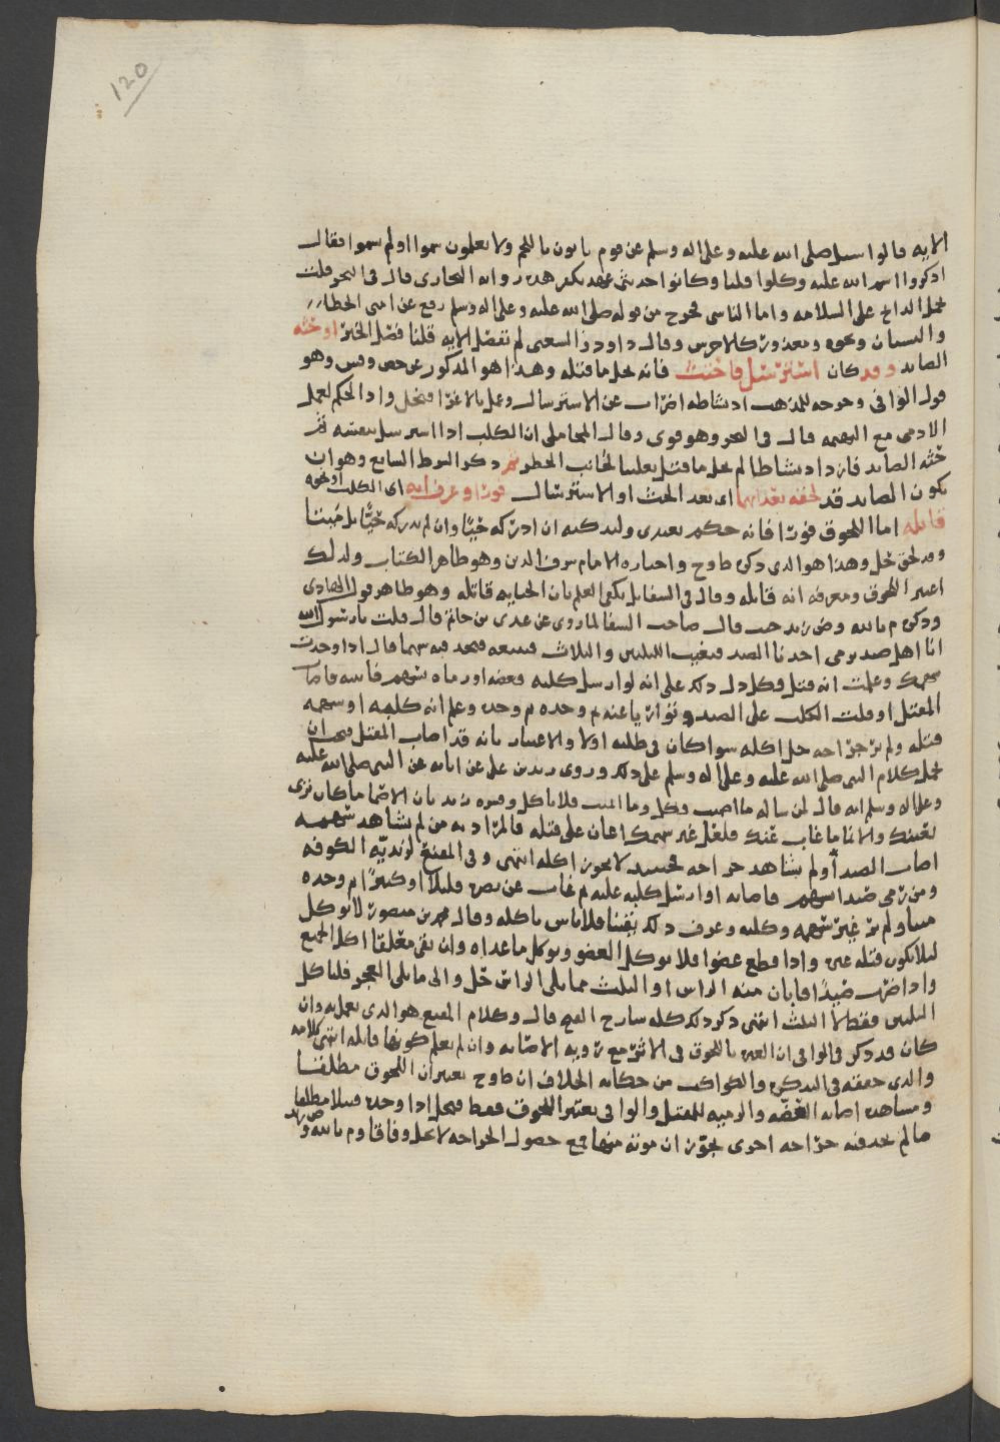 120
الايه قالوا سئل صلى الله عليه وعلى اله وسلم عن قوم ياتون باللحم ولا يعلمون سموا او لم يسموا فقال
اذكروا اسم الله عليه وكلوا قلنا وكانوا حديثى عهد بكفر هذه رواية البخارى قال فى البحر قلت
يحمل الذابح على السلامه واما الناسى فمخرج من قوله صلى الله عليه وعلى اله وسلم رفع عن امتى الخطا
والنسيان ونحوه ومعذور كالاخرس وقال داود والشعبى لم تفصل الايه قلنا فصل الخبر او حثه
الصايد وقد كان استرسل فاحتث فانه يحل ما قتله وهذا هو المذكور عن حص وقيس وهو
قول الوافى وخرجه للمذهب اذ نشاطه اضراب عن الاسترسال وعمل بالاغرا فيحل واذ الحكم لعمل
الادمى مع البهيمه قال فى البحر وهو قوى وقال المحاملى ان الكلب اذا استرسل بنفسه ثم
حثه الصايد فازداد نشاطا لم يحل ما قتل تغليبا لجانب الحظر ثم ذكر الشرط السابع وهو ان
يكون الصايد قد لحقه بعد ايهما اى بعد الحث او الاسترسال فورا وعرف انه اى الكلب او نحوه
قاتله اما اللحوق فورا فانه حكم تعبدى وليدركه ان ادركه حيا وان لم يدركه حيا بل ميتا
وقد لحق حل وهذا هو الذى ذكره ط وح واختاره الامام شرف الدين وهو ظاهر الكتاب ولذلك
اعتبر اللحوق ومعرفه انه قاتله وقال فى السفا بل يكفى العلم بان الجنايه قاتله وهو ظاهر قول الهادى
وذكره م بالله وض زيد حيث قال صاحب السفا لما روى عن عدى بن حاتم قال قلت يا رسول الله
انا اهل صيد يرمى احدنا الصيد فيغيب الليلتين والثلاث فيتبعه فيجد فيه سهما قال اذا وجدت
سهمك وعلمت انه قتل فكل دل ذلك على انه لو ارسل كلبه فعضه او رماه بسهم فاثبته فاصاب
المقتل او فلت الكلب على الصيد وتواريا عنه ثم وجده وعلم انه كلبه او سهمه
قتله ولم ير جراحه حل اكله سوا كان فى طلبه اولا والاعتبار بانه قد اصاب المقتل فيجب ان
يحمل كلام النبى صلى الله عليه وعلى اله وسلم على ذلك وروى زيد بن على عن ابايه عن النبى صلى الله عليه
وعلى اله وسلم انه قال لمن ساله ما اصميت فكل وما انميت فلا تاكل وفسره زيد بان الاصما ما كان ترى
بعينك والانما ما غاب عنك فلعل غير سهمك اعان على قتله فالمراد به من لم يشاهد سهمه
اصاب الصيد او لم يشاهد جراحه فحينئذ لا يجوز اكله انتهى وفى المقنع لزيديه الكوفه
ومن رمى صيدا بسهم فاصابه او ارسل كلبه عليه ثم غاب عن بصره قليلا او كثيرا ثم وجده
ميتا ولم ير غير سهمه وكلبه وعرف ذلك يقينا فلا باس باكله وقال محمد بن منصور لا يوكل
ليلا يكون قتله غيره واذا قطع عضوا فلا يوكل العضو ويوكل ما عداه وان بقى معلقا اكل الجميع
واذا ضرب صيدا فابان منه الراس او الثلث مما يلى الراس حل والى ما يلى العجز فليأكل
الثلثين فقط لا الثلث انتهى ذكر ذلك كله شارح الفتح قال وكلام المقنع هو الذى نعمل به وان
كان قد ذكر قالوا فى ان العبره باللحوق فى الاثر مع رويه الاصابه وان لم يعلم كونها قاتله انتهى كلامه
والذى حققه فى التذكره والكواكب من حكايه الخلاف ان ط وح يعتبران اللحوق مطلقا
ومشاهده اصابه العضه والرميه للمقتل والوافى يعتبر اللحوق فقط فيحل اذا وجده قتيلا مطلقا
ما لم يجد فيه جراحه اخرى يجوز ان موته منها فمع حصول الجراحه لا يحل وفاقا و م بالله وض زيد